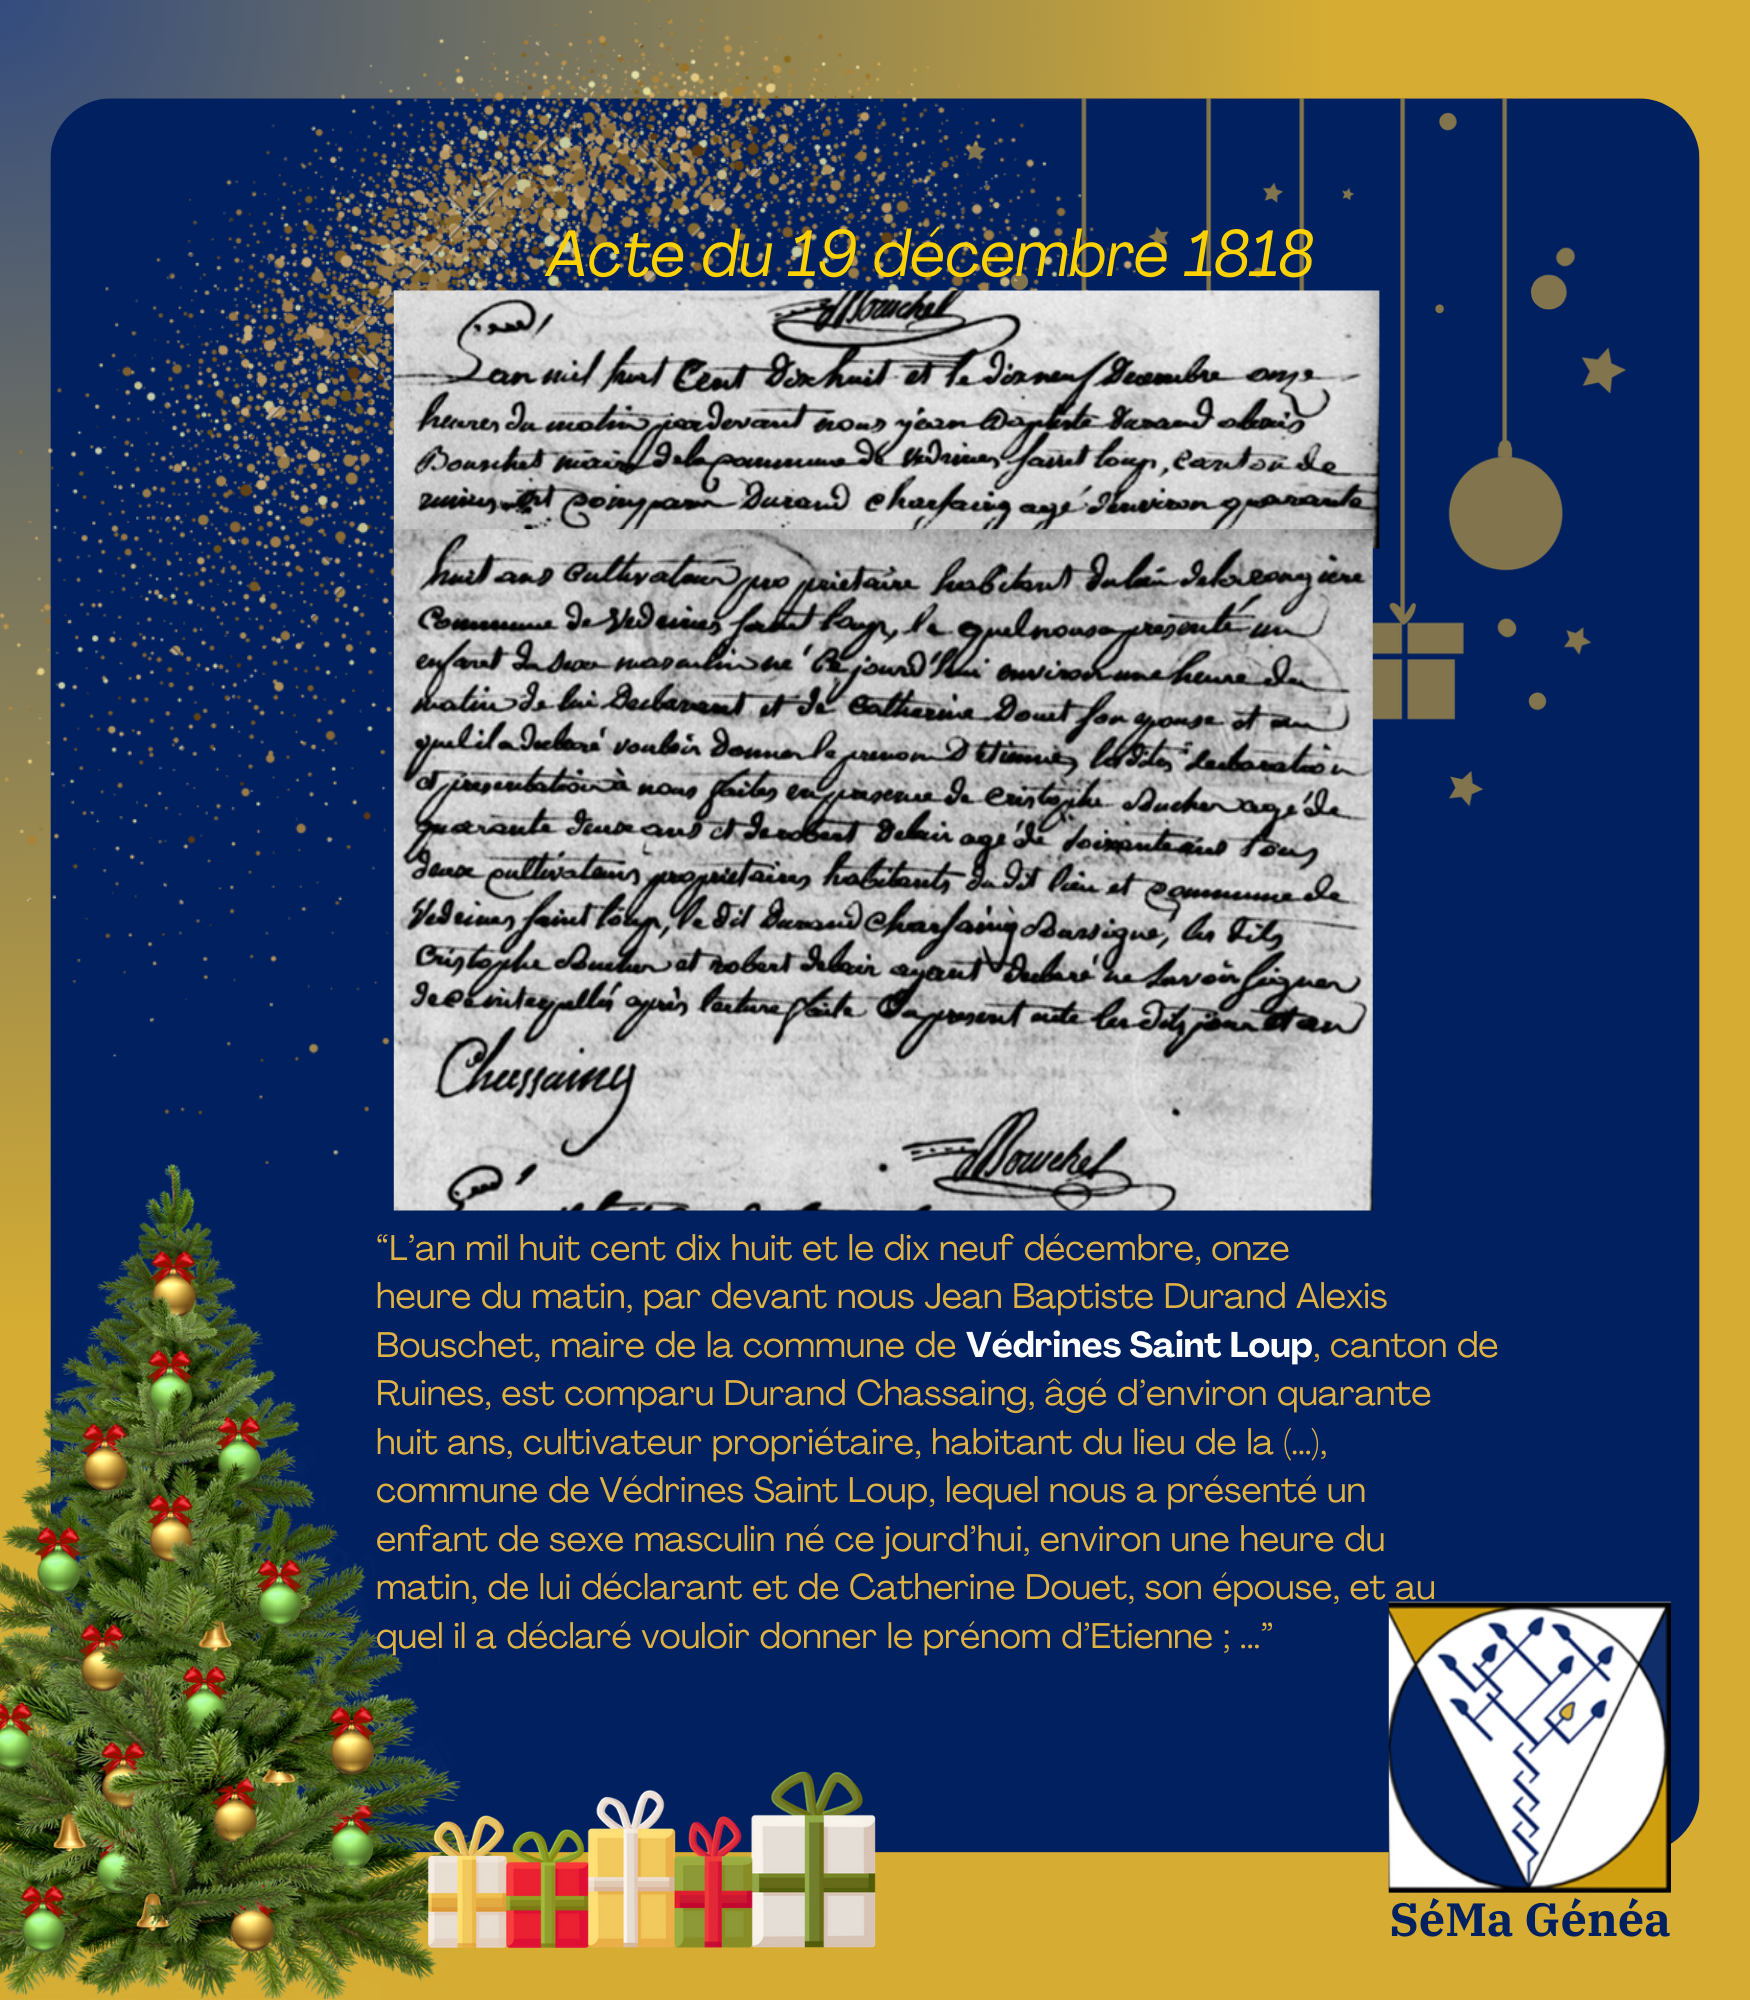 Acte du 19 décembre 1818
Bouschet
L'an mil huit Cent Dix huit et le dix neuf Decembre onze
heures du matin par devant nous jean Baptiste Durand alexis
Bouschet maire de la commune de vedrines saint loup, canton de
ruines est comparu Durand Chassaing agé d'environ quarante
huit ans Cultivateur proprietaire habitant du lieu de la
Commune de Vedrines saint loup, le quel nous a presenté un
enfant du sexe masculin né ce jourd'hui environ une heure du
matin de lui Declarant et de Catherine Douet son epouse et au
quel il a declaré vouloir donner le prenom D'Etienne, les dites declaration
et presentation à nous faites en presence de Cristophe agé de
quarante deux ans et de robert Delair agé de soixante ans tous
deux cultivateurs proprietaires habitants du dit lieu et commune de
Vedrines saint loup, le dit Durand Chassaing a signé, les dits
Cristophe et robert delair ayant declaré ne savoir signer
de ce interpellés après lecture faite Du present acte les dits jour et an
Chassaing
Bouschet
“L’an mil huit cent dix huit et le dix neuf décembre, onze
heure du matin, par devant nous Jean Baptiste Durand Alexis
Bouschet, maire de la commune de Védrines Saint Loup, canton de
Ruines, est comparu Durand Chassaing, âgé d’environ quarante
huit ans, cultivateur propriétaire, habitant du lieu de la (...),
commune de Védrines Saint Loup, lequel nous a présenté un
enfant de sexe masculin né ce jourd’hui, environ une heure du
matin, de lui déclarant et de Catherine Douet, son épouse, et au
quel il a déclaré vouloir donner le prénom d’Etienne ; ...”
SéMa Généa